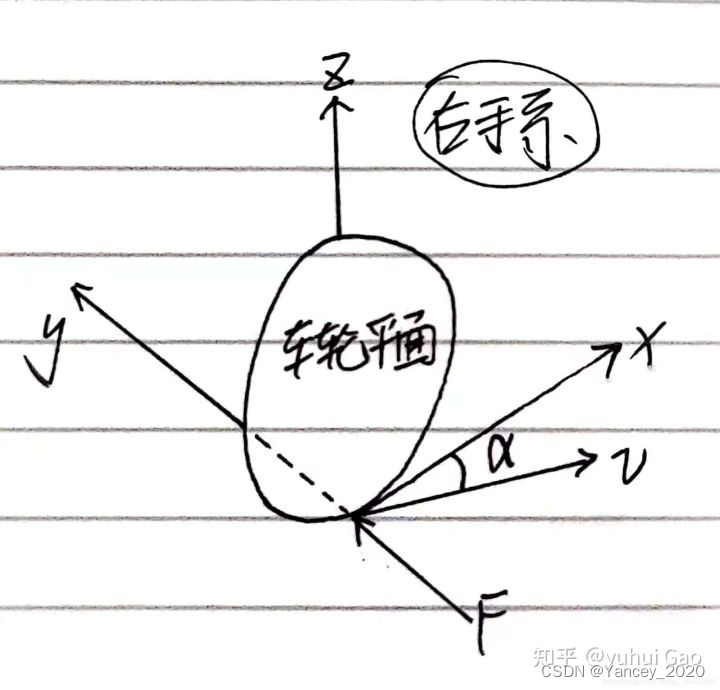 z
右手系
y
车轮平面
x
α
v
F
知乎 @yuhui Gao
CSDN @Yancey_2020